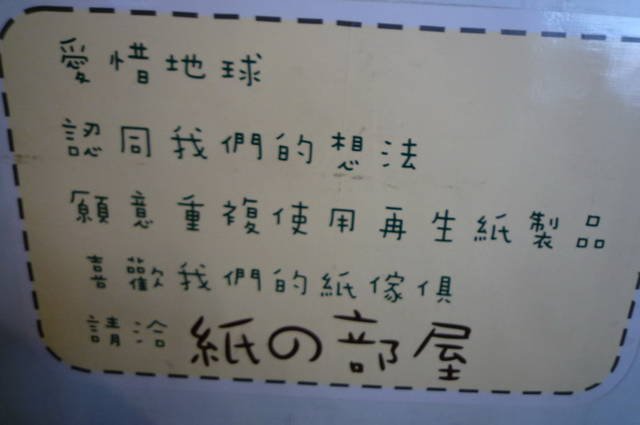 愛惜地球
認同我們的想法
願意重複使用再生紙製品
喜歡我們的紙傢俱
請洽 紙の部屋